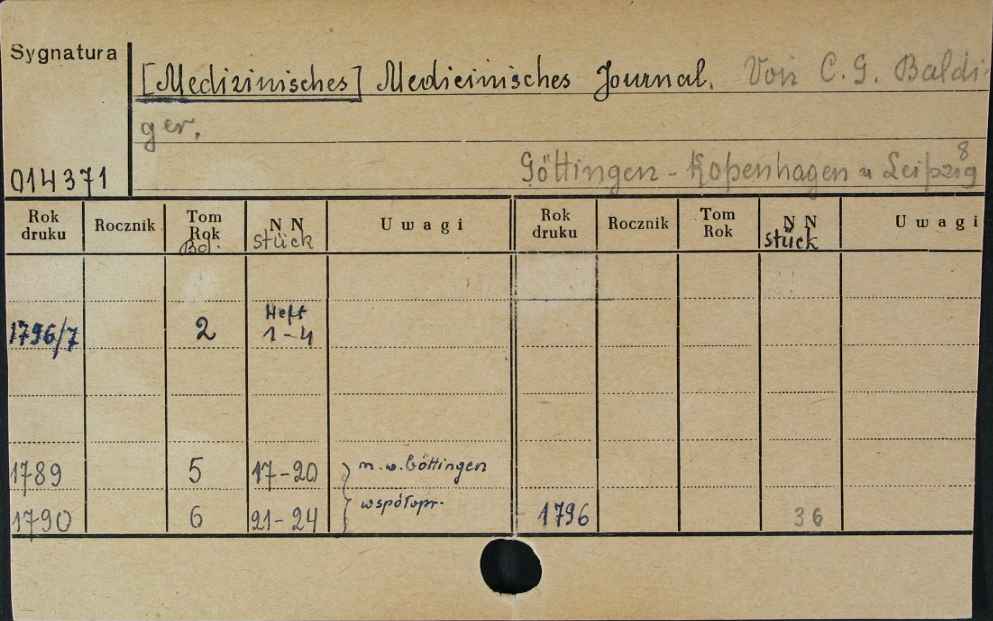 Sygnatura
[Medizinisches] Medicinisches Journal. Von C. G. Baldi-
ger.
014371
Göttingen - Kopenhagen u Leipzig 8
Rok druku Rocznik Tom Rok Bd. N N stück Uwagi Rok druku Rocznik Tom Rok N N stück Uwagi
1796/7 2 Heft 1-4
1789 5 17-20 m. w. Göttingen
1790 6 21-24 współopr. 1796 36